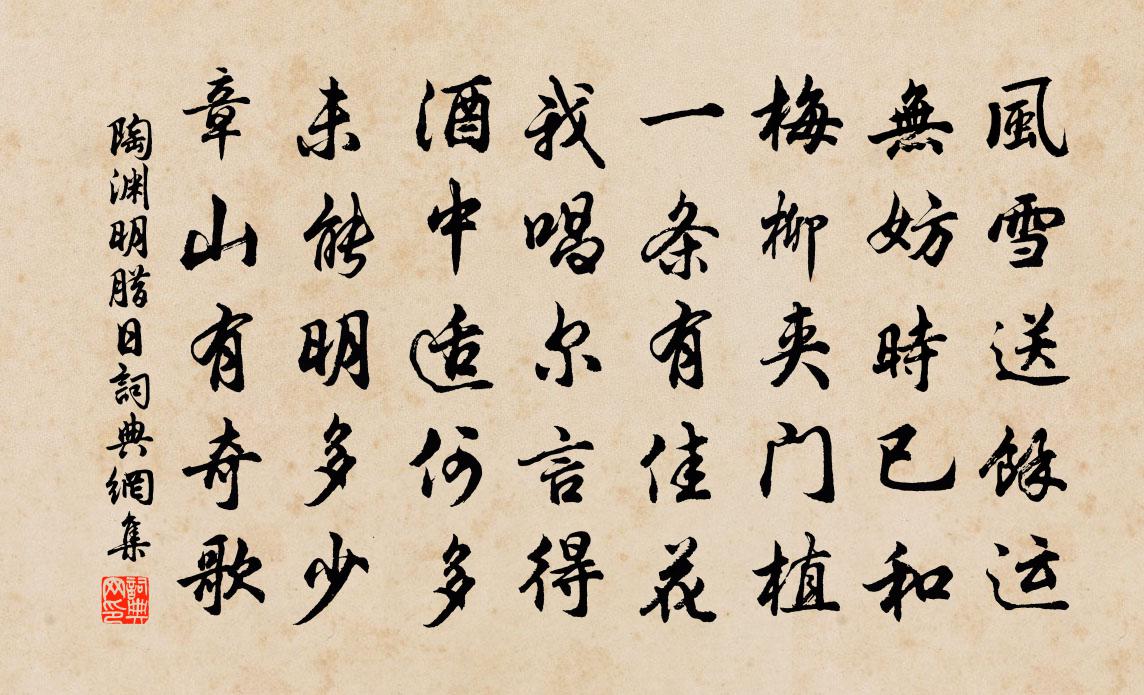 風雪送餘运
無妨時已和
梅柳夹门植
一条有佳花
我唱尔言得
酒中适何多
未能明多少
章山有奇歌
陶渊明腊日詞典網集
詞典网印